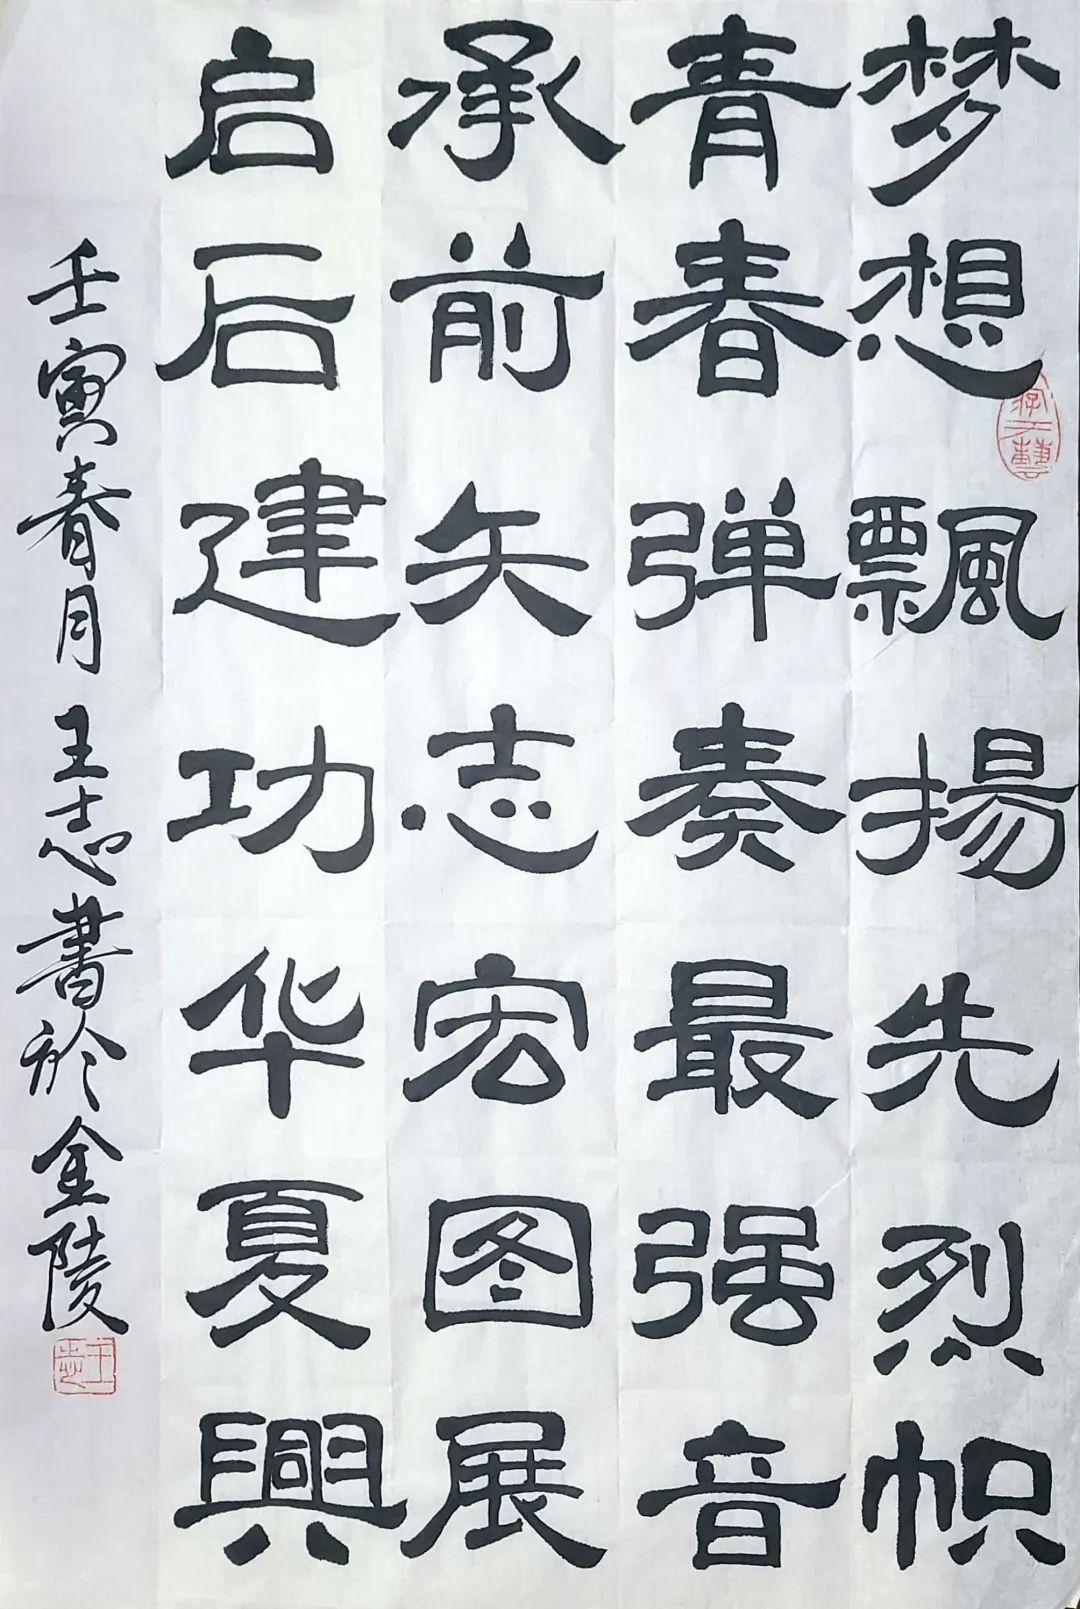 梦想飘揚先烈帜
青春弹奏最强音
承前矢志宏图展
启后建功华夏興
壬寅春月王志書於金陵
王志